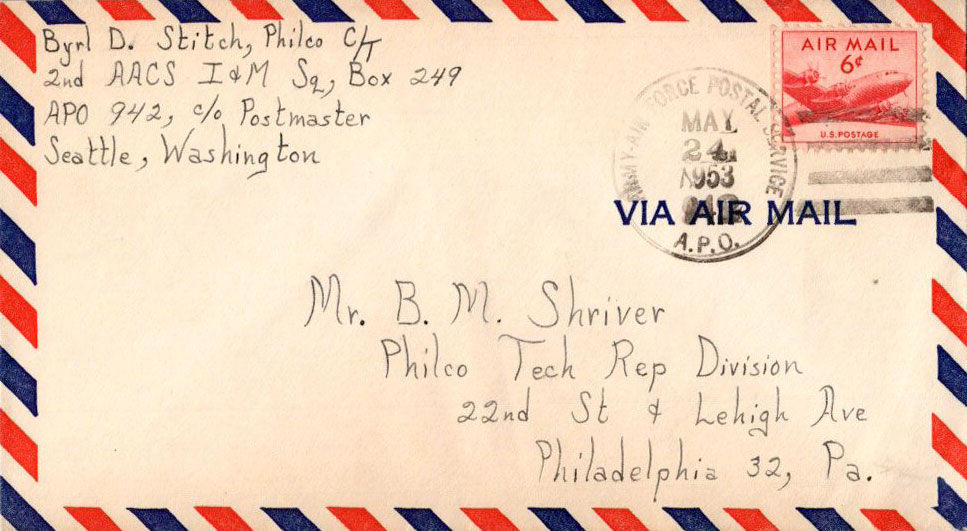 Byrl D. Stitch, Philco C/T
2nd AACS I & M Sq, Box 249
APO 942, c/o Postmaster
Seattle, Washington
AIR MAIL
6¢
U.S. POSTAGE
ARMY-AIR FORCE POSTAL SERVICE
MAY
24
1953
942
A.P.O.
VIA AIR MAIL
Mr. B. M. Shriver
Philco Tech Rep Division
22nd St & Lehigh Ave
Philadelphia 32, Pa.